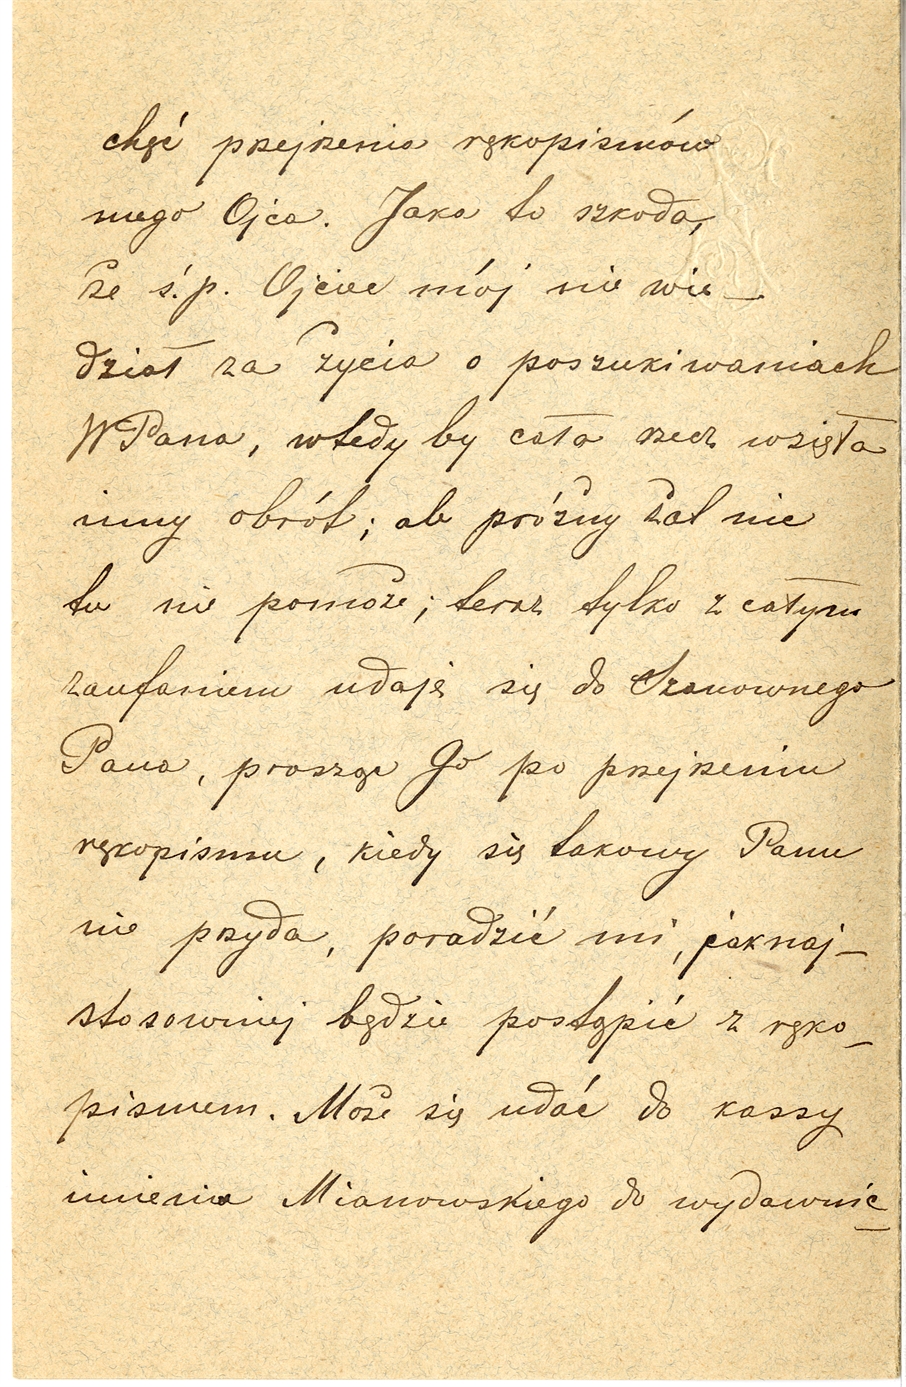 chęć przejrzenia rękopismów
mego Ojca. Jaka to szkoda,
że ś.p. Ojciec mój nie wie-
dział za życia o poszukiwaniach
WPana, wtedy by cała rzecz wzięła
inny obrót; ale próżny żal nic
tu nie pomoże; teraz tylko z całym
zaufaniem udaję się do Szanownego
Pana, prosząc Go po przejrzeniu
rękopismu, kiedy się takowy Panu
nie przyda, poradzić mi, jaknaj-
stosowniej będzie postąpić z ręko-
pismem. Może się udać do kassy
imienia Mianowskiego do wydawnic